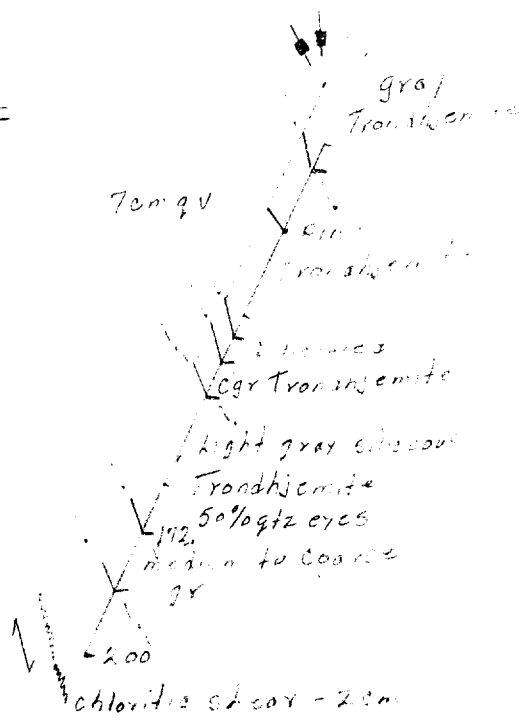 gray
Trondhjemite
7cm qv
Trondhjemite
Cgr Trondhjemite
Light gray siliceous
Trondhjemite
50% qtz eyes
172.
medium to coarse
gr
200
chloritic shear - 2cm